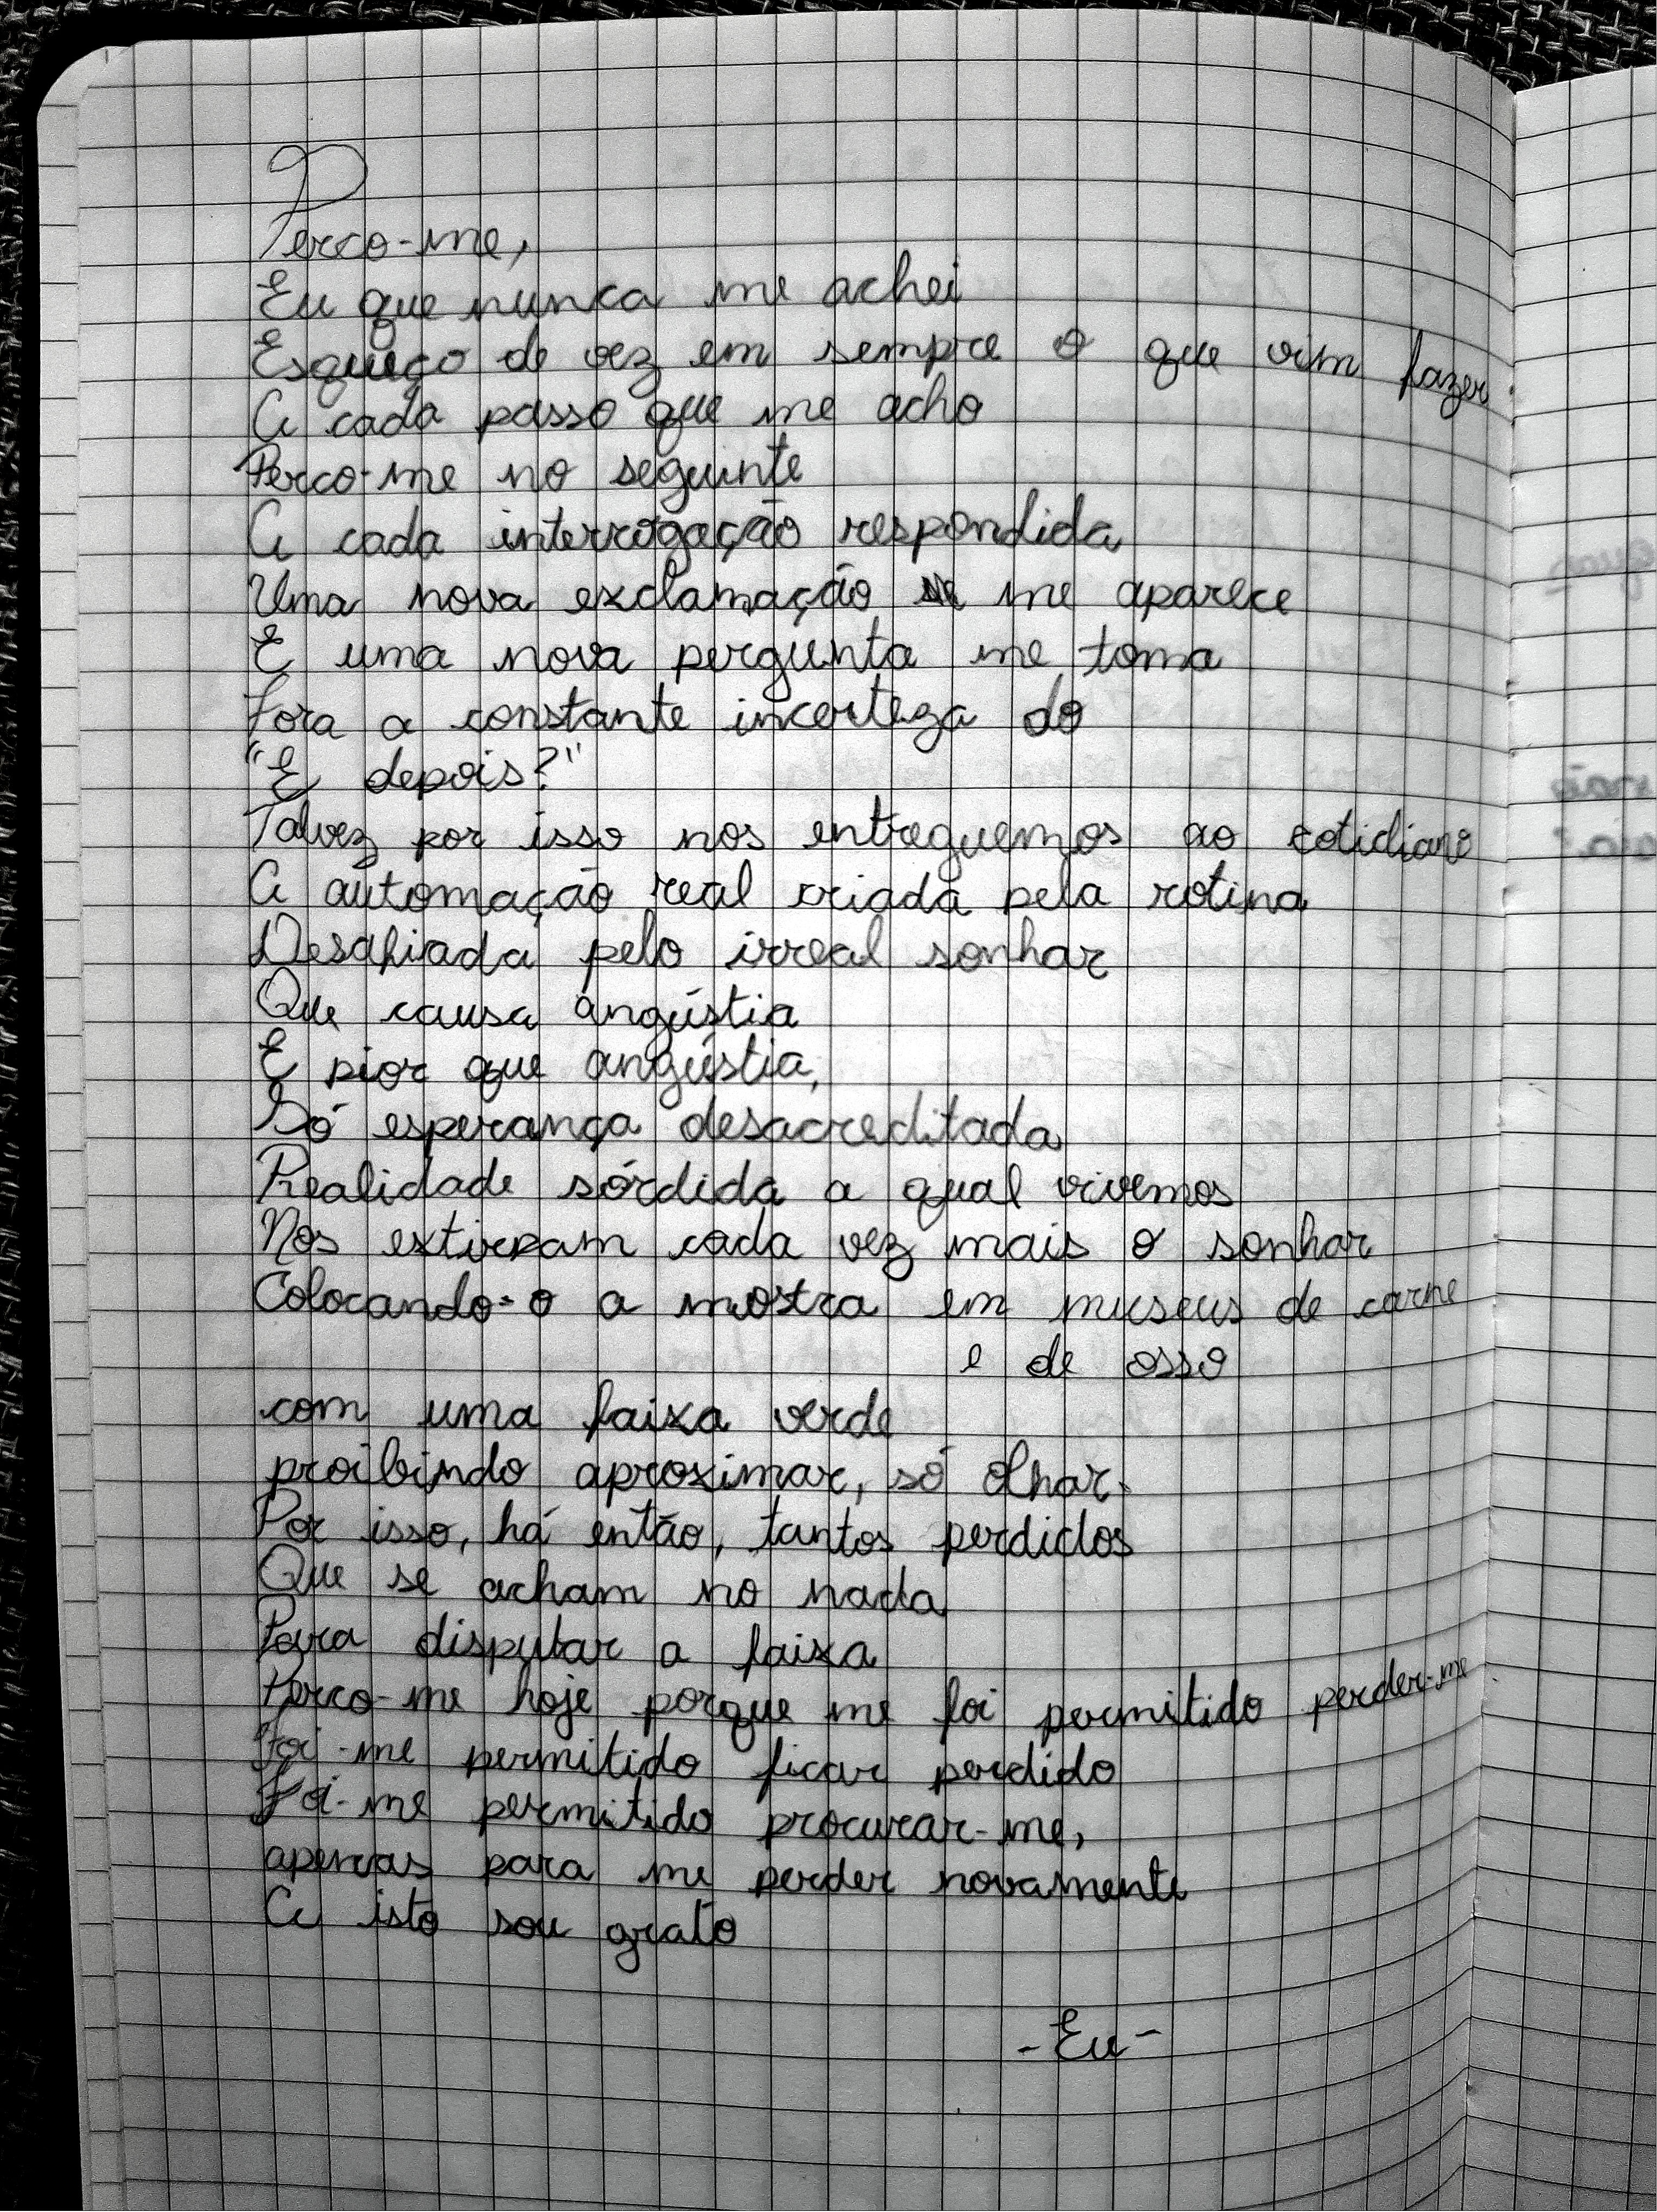 Perco-me,
Eu que nunca me achei
Esqueço de vez em sempre o que vim fazer.
A cada passo que me acho
Perco-me no seguinte
A cada interrogação respondida
Uma nova exclamação me aparece
E uma nova pergunta me toma
Fora a constante incerteza do
"E depois?"
Talvez por isso nos entreguemos ao cotidiano
A automação real criada pela rotina
Desafiada pelo irreal sonhar
Que causa angústia
E pior que angústia,
Só esperança desacreditada
Realidade sórdida a qual vivemos
Nos extirpam cada vez mais o sonhar
Colocando-o a mostra em museus de carne
e de osso
com uma faixa verde
proibindo aproximar, só olhar.
Por isso, há então, tantos perdidos
Que se acham no nada
Para disputar a faixa
Perco-me hoje porque me foi permitido perder-me
Foi-me permitido ficar perdido
Foi-me permitido procurar-me,
apenas para me perder novamente
A isto sou grato
-Eu-